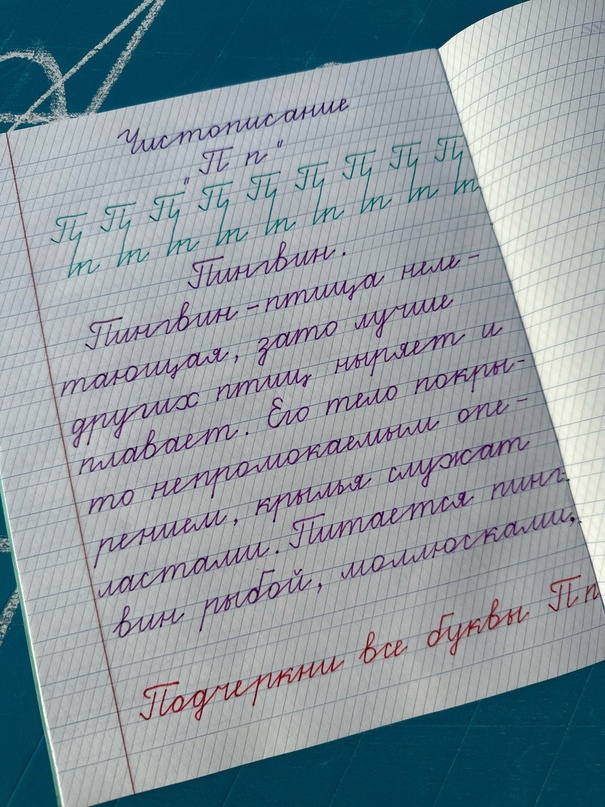 Чистописание
"П п"
П П П П П П П П П
п п п п п п п п п
Пингвин.
Пингвин - птица неле-
тающая, зато лучше
других птиц ныряет и
плавает. Его тело покры-
то непромокаемым опе-
рением, крылья служат
ластами. Питается пинг-
вин рыбой, моллюсками.
Подчеркни все буквы Пп